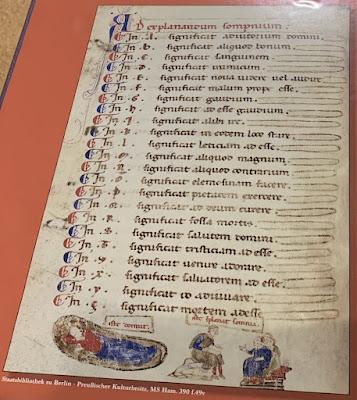 Ad explanandum sompnium.
In .a. significat adiutorium domini.
In .b. significat aliquod bonum.
In .c. significat sanguinem
In .d. significat inimicum
In .e. significat nova videre vel audire
In .f. significat malum prope esse.
In .G. significat gaudium.
In .h. significat ad esse gaudium.
In .I. significat alibi ire.
In .k. significat in eodem loco stare.
In .l. significat leticiam ad esse.
In significat aliquod magnum.
In .n. significat aliquod contrarium
In .o. significat elemosinam facere.
In .p. significat pietatem exercere.
In .q. significat ad forum currere.
In .R. significat fossa mortis.
In .s. significat salutem domini.
In .t. significat tristiciam ad esse.
In .v. significat venire adorare.
In .x. significat salvatorem ad esse.
In .y. significat te adiuvare.
In significat mortem adesse
iste dormit.
iste somnia.
Staatsbibliothek zu Berlin - Preußischer Kulturbesitz, MS Ham. 390 f.49v